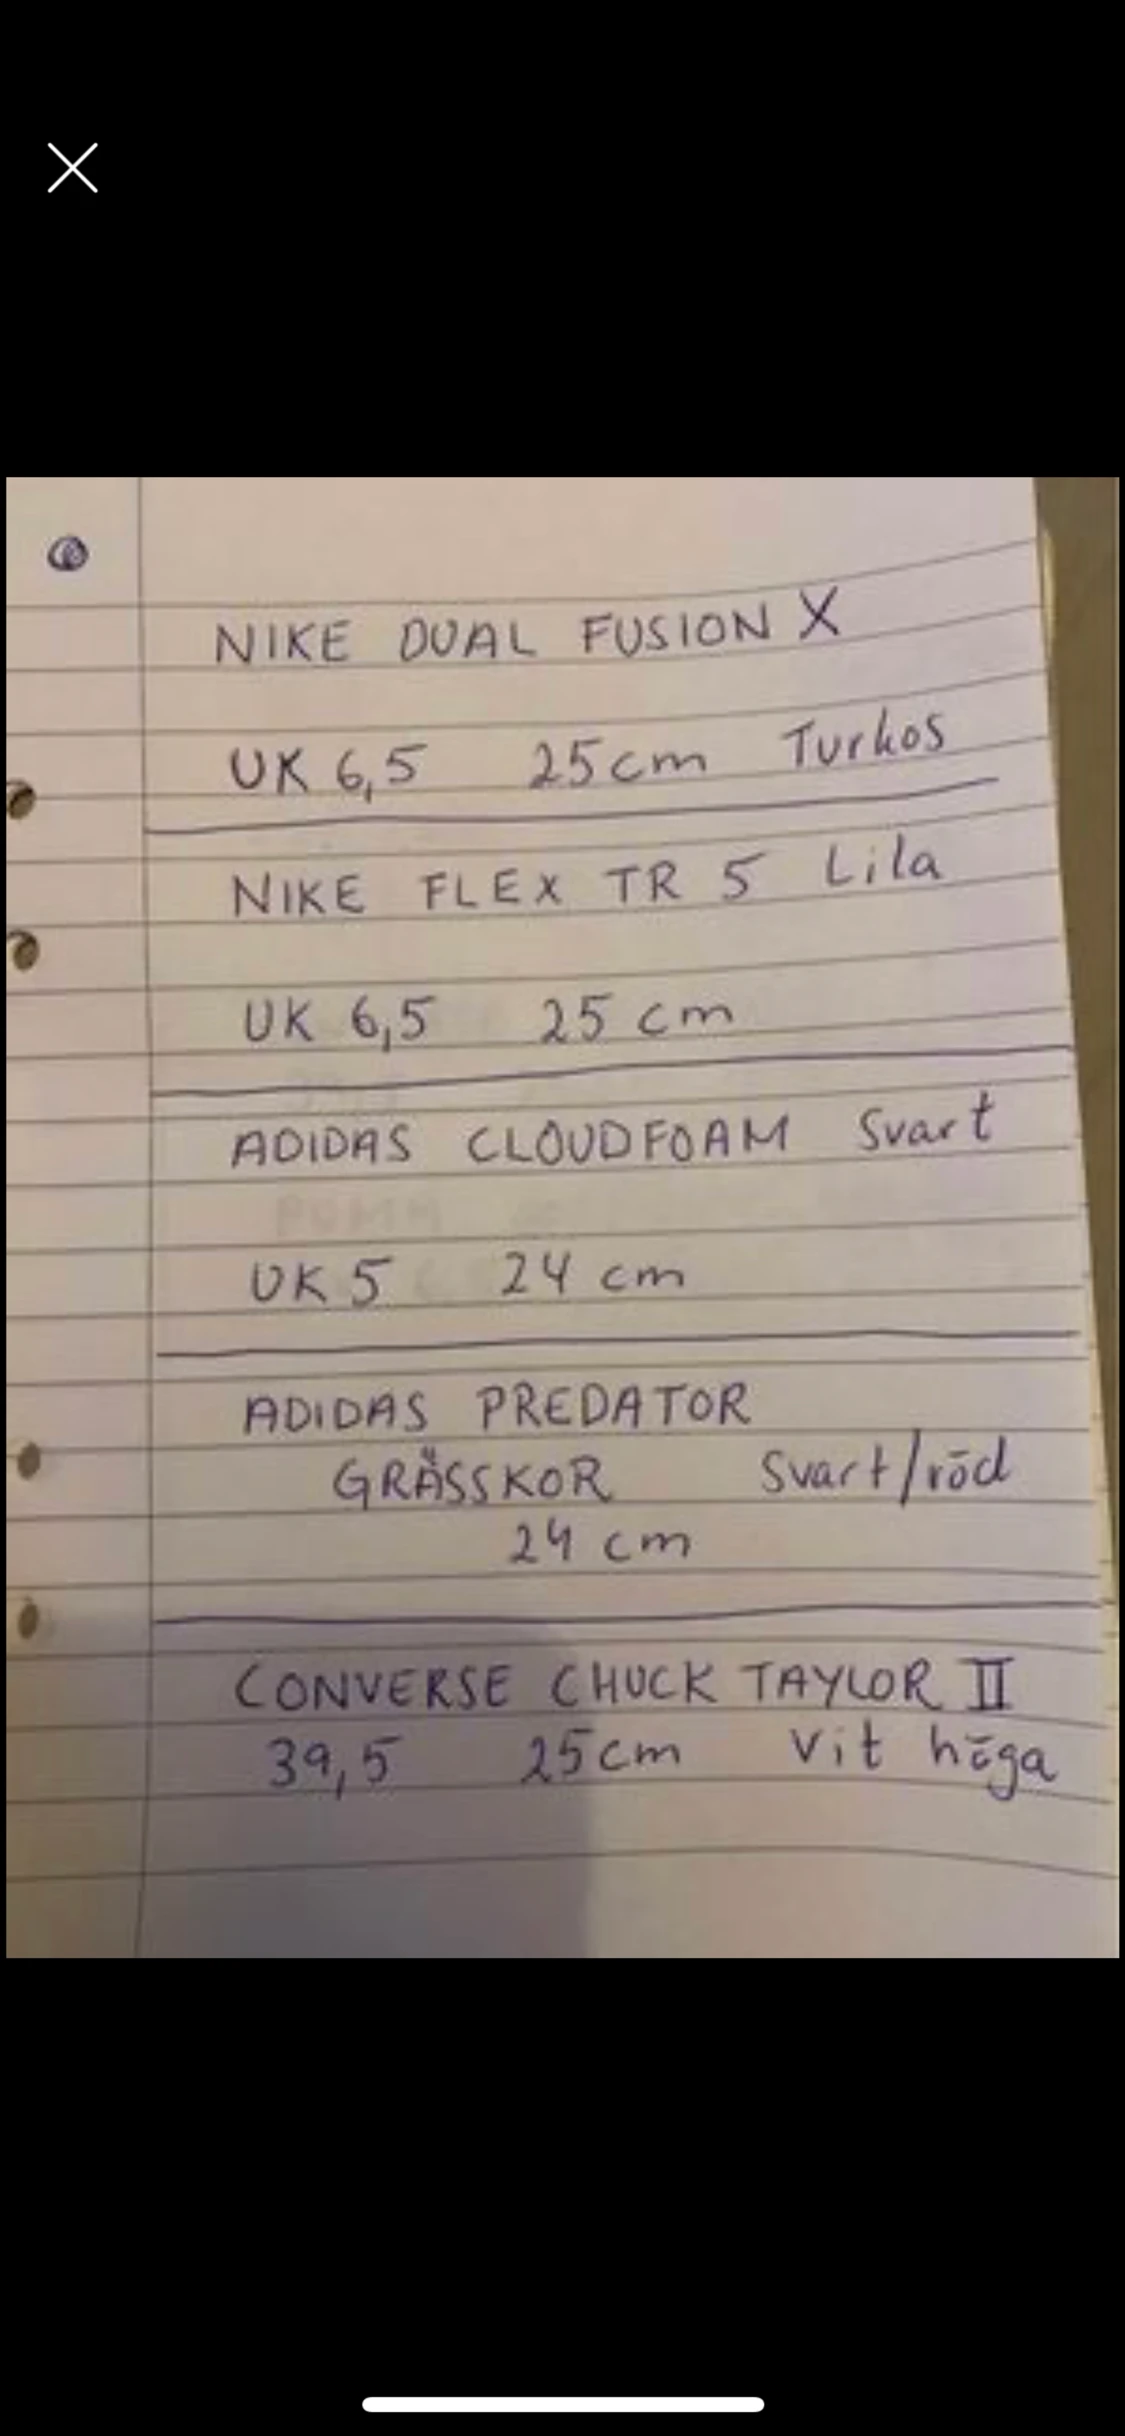 NIKE DUAL FUSION X
UK 6,5 25cm Turkos
NIKE FLEX TR 5 Lila
UK 6,5 25 cm
ADIDAS CLOUDFOAM Svart
UK 5 24 cm
ADIDAS PREDATOR
GRÄSSKOR Svart/röd
24 cm
CONVERSE CHUCK TAYLOR II
39,5 25cm Vit höga